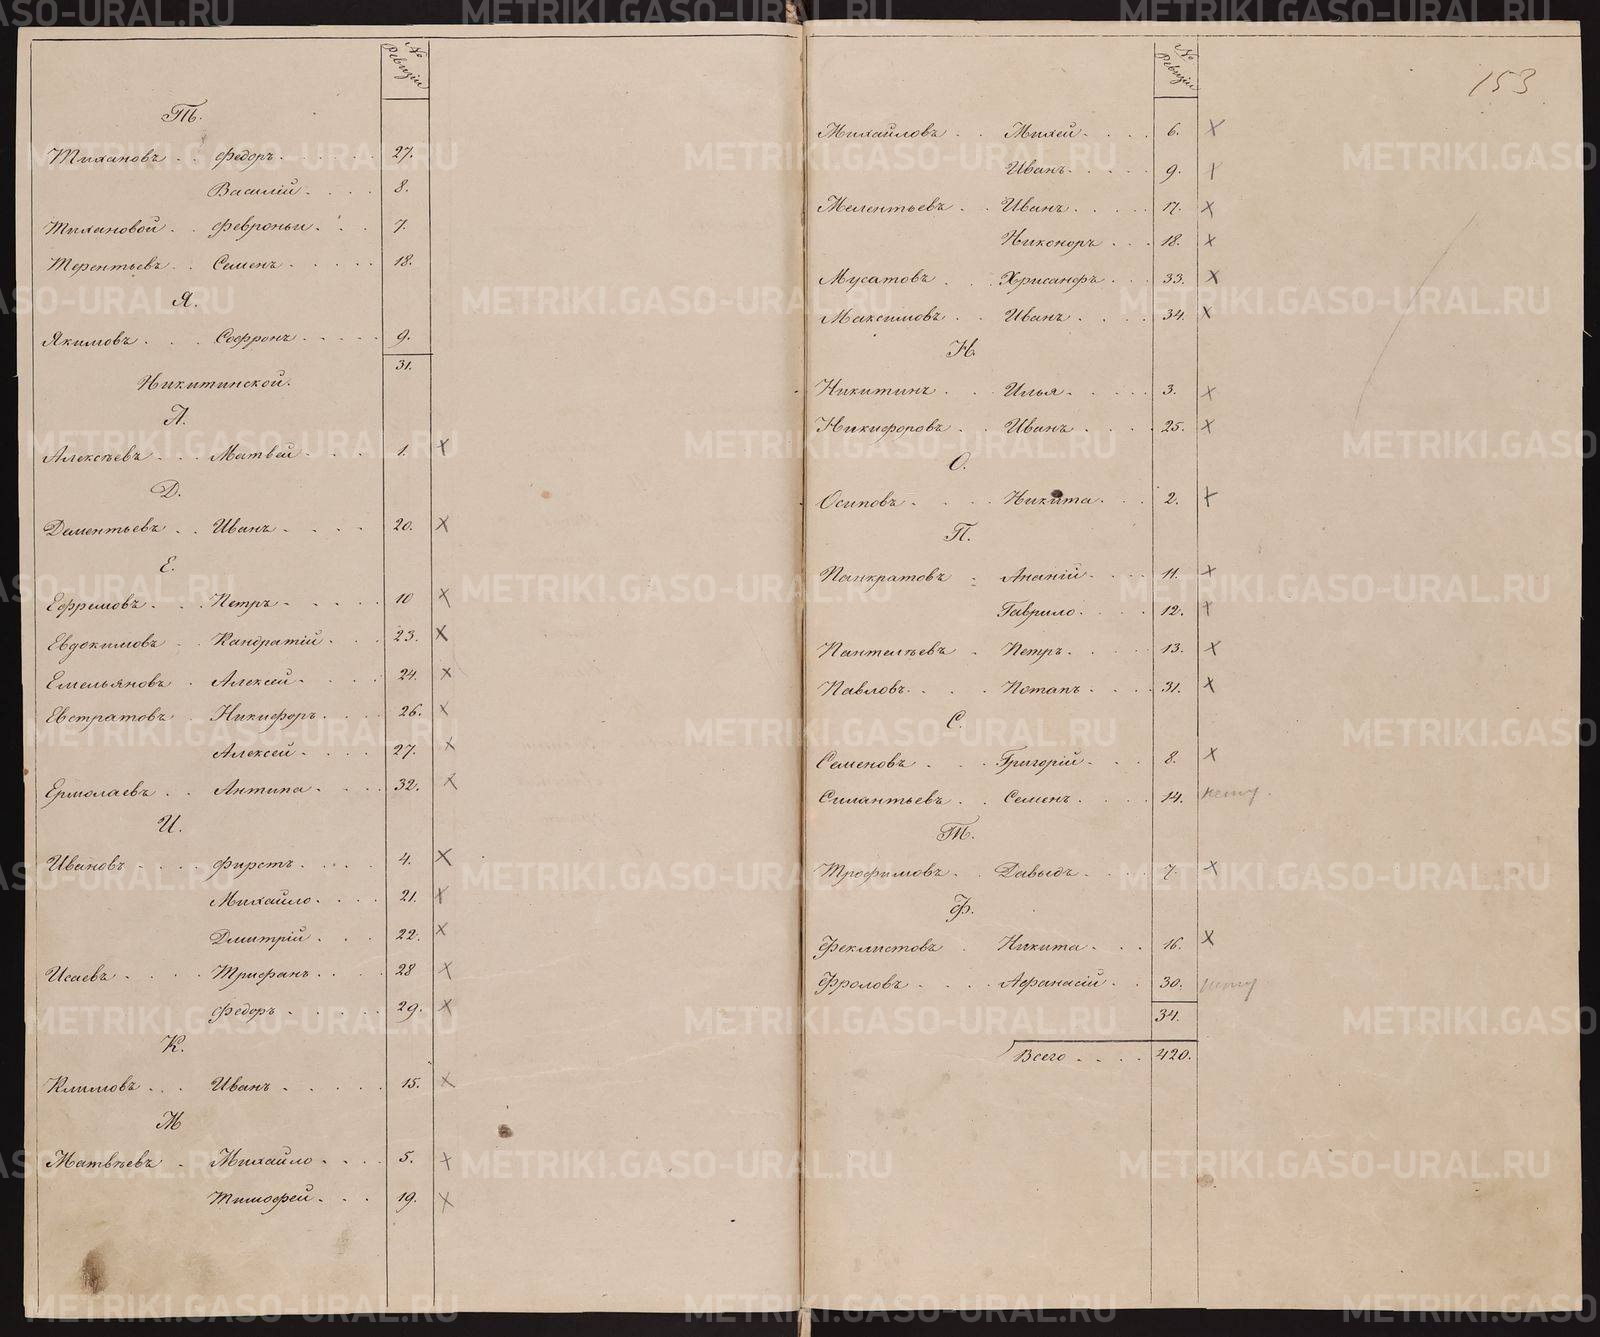 № Ревизіи
Т.
Тихановъ . . Федоръ . . . . . . 27.
Василій . . . . 8.
Тихановой . . Февроньи . . . 7.
Терентьевъ . . Семенъ . . . . . 18.
Я.
Якимовъ . . . Софронъ . . . . . 9.
31.
Никитинской.
А.
Алексѣевъ . . . Матвей . . . . 1. ×
Д.
Дементьевъ . . Иванъ . . . . 20. ×
Е.
Ефремовъ . . . Петръ . . . . . 10 ×
Евдокимовъ . . Кандратій . . . 23. ×
Емельяновъ . Алексей . . . . 24. ×
Евстратовъ . Никифоръ . . . . 26. ×
Алексей . . . . 27. ×
Ермолаевъ . . Антипа . . . . 32. ×
И.
Ивановъ . . . . Фирстъ . . . . 4. ×
Михайло . . . . 21. ×
Дмитрій . . . 22. ×
Исаевъ . . . . Трифанъ . . . . 28 ×
Федоръ . . . . . 29. ×
К.
Климовъ . . . Иванъ . . . . . 15. ×
М
Матвѣевъ . Михайло . . . . 5. ×
Тимофей . . . 19. ×
№ Ревизіи
153
Михайловъ . . Михей . . . . 6. ×
Иванъ . . . . . 9. ×
Мелентьевъ . . Иванъ . . . . . 17. ×
Никоноръ . . . 18. ×
Мусатовъ . . Хрисанфъ . . . 33. ×
Максимовъ . . Иванъ . . . . 34. ×
Н.
Никитинъ . . . Илья . . . . . 3. ×
Никифоровъ . . Иванъ . . . . 25. ×
О.
Осиповъ . . . . Никита . . . 2. ×
П.
Панкратовъ . Ананій . . . . 11. ×
Гаврило . . . . 12. ×
Пантелѣевъ . Петръ . . . . 13. ×
Павловъ . . . . Потапъ . . . . 31. ×
С.
Семеновъ . . . Григорій . . . 8. ×
Силантьевъ . . Семенъ . . . . 14. нету.
Т.
Трофимовъ . . Давыдъ . . . . 7. ×
Ф.
Феклистовъ . Никита . . . 16. ×
Фроловъ . . . . Афанасій . . 30. нету
34.
Всего . . . . 420.
METRIKI.GASO-URAL.RU